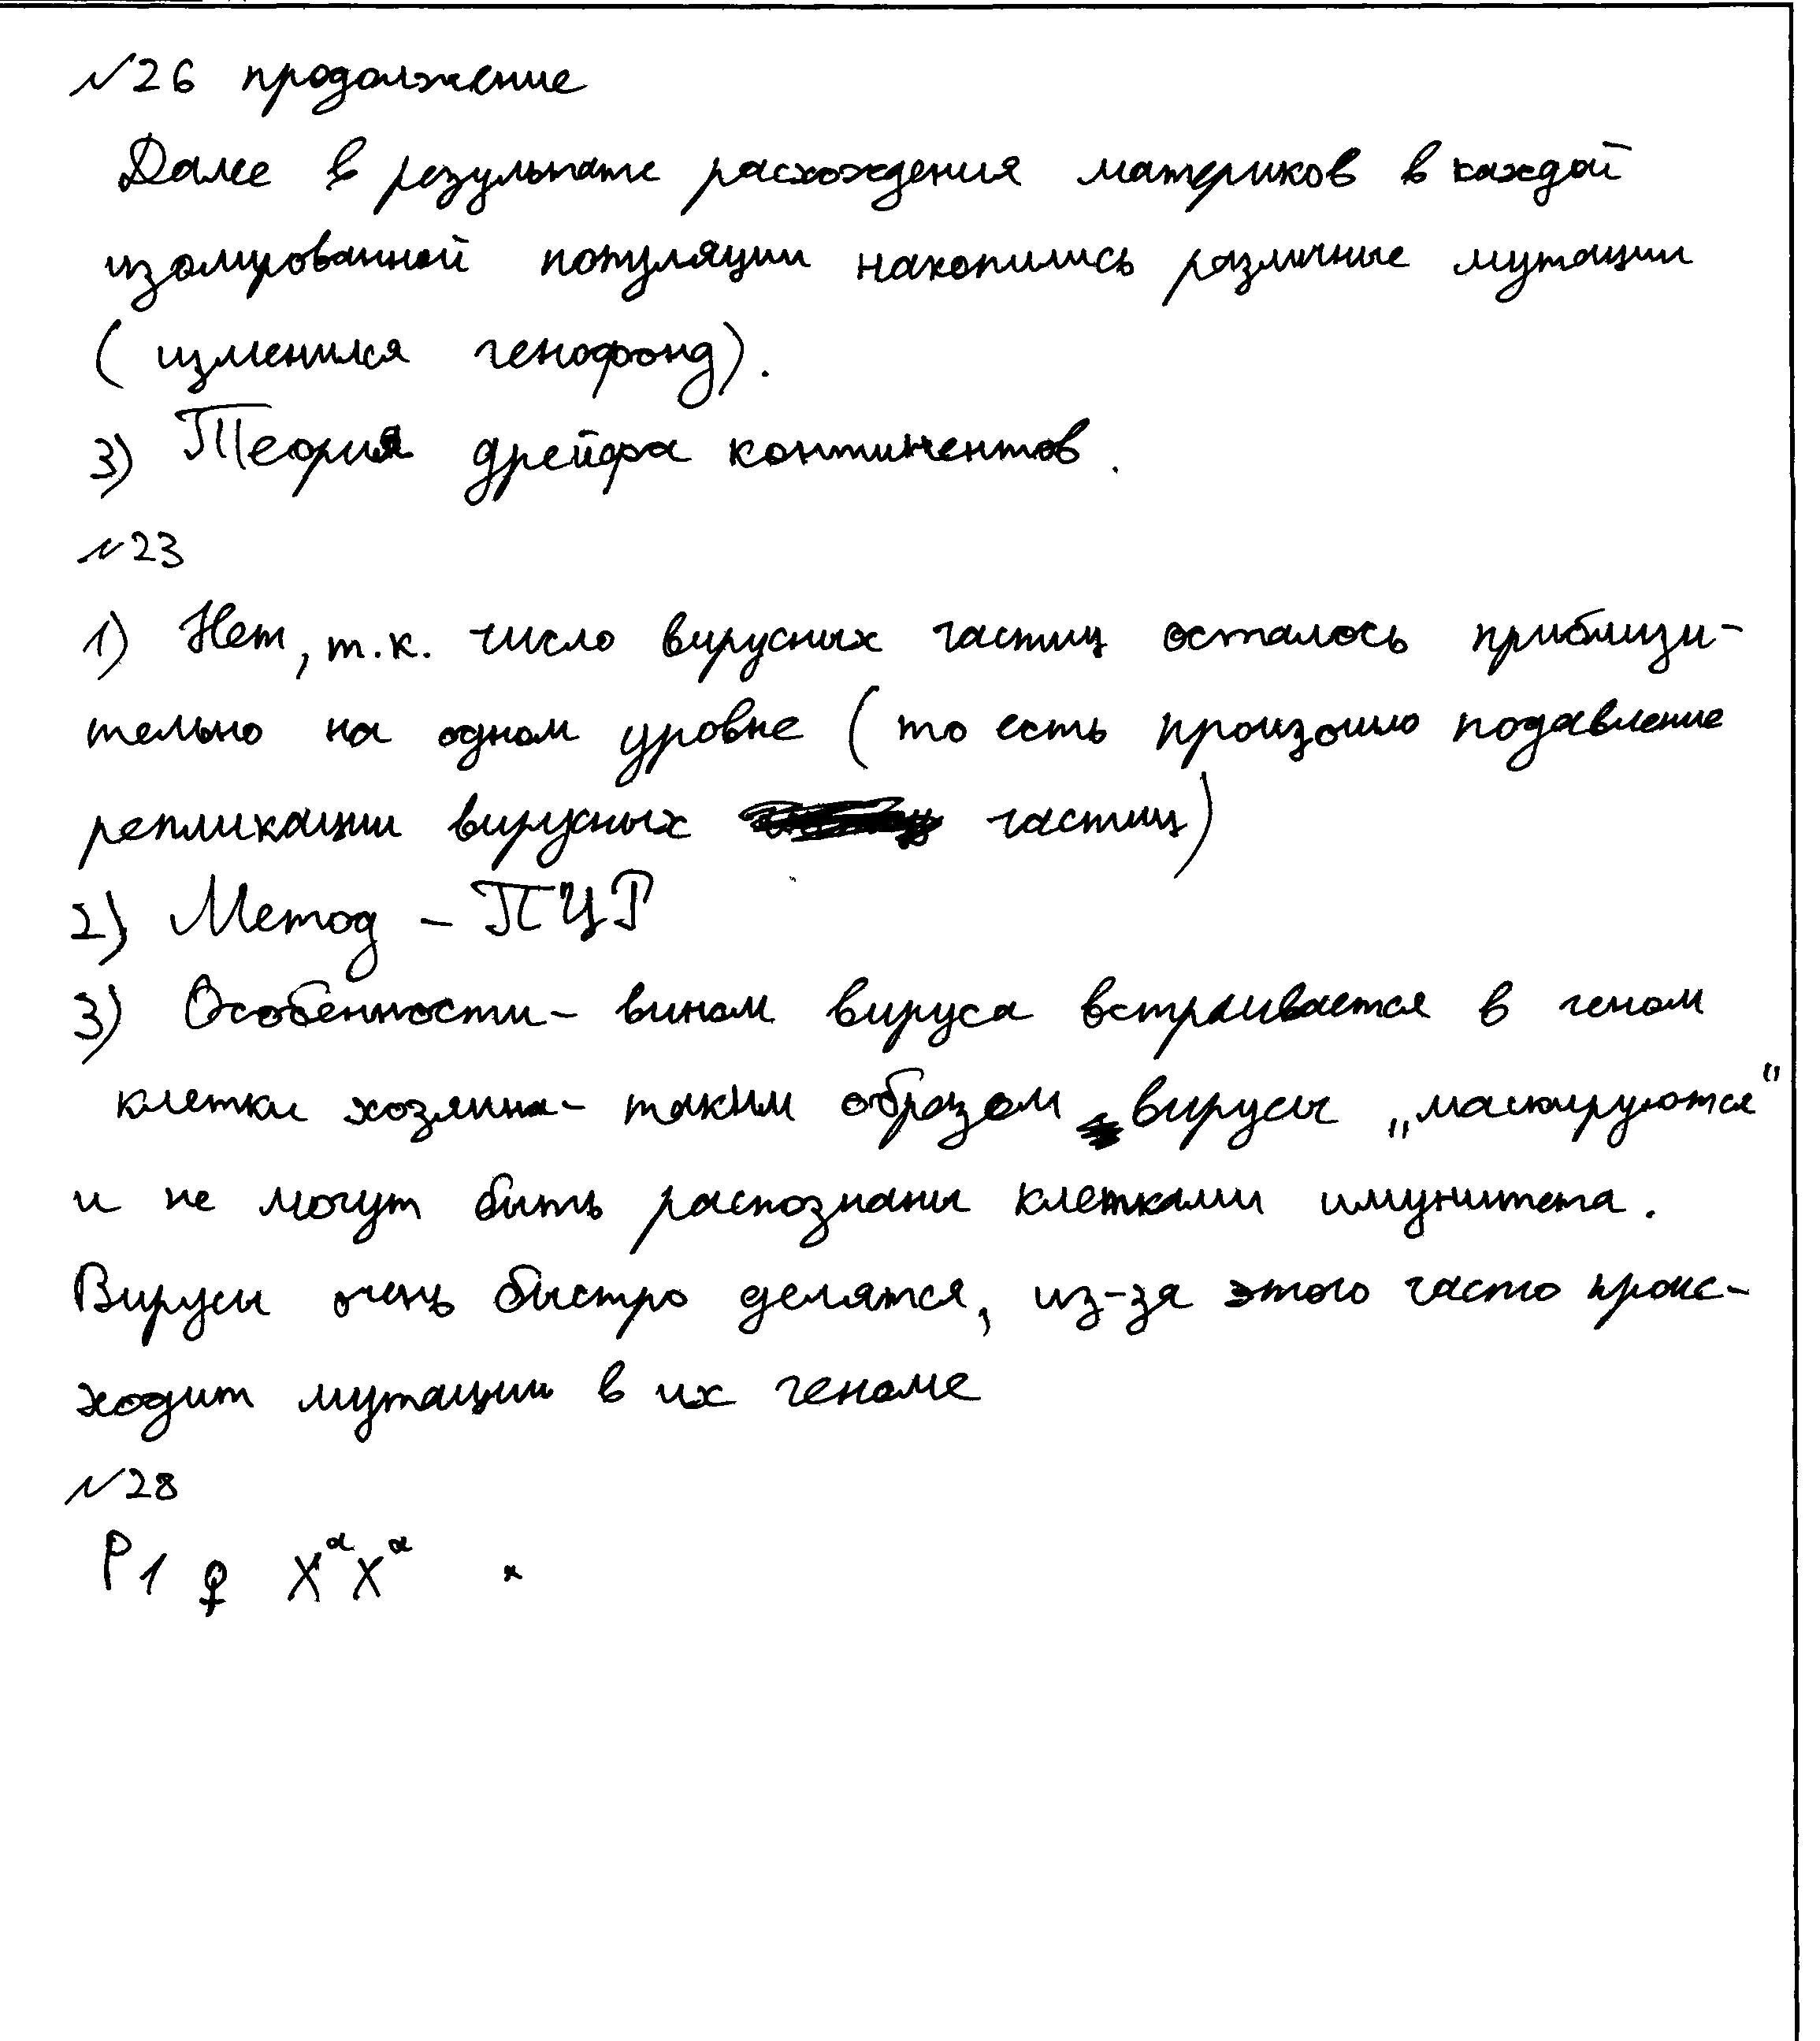 №26 продолжение
Далее в результате расхождения материков в каждой
изолированной популяции накопились различные мутации
( изменился генофонд).
3) Теория дрейфа континентов.
№23
1) Нет, т.к. число вирусных частиц осталось приблизи-
тельно на одном уровне (то есть произошло подавление
репликации вирусных частиц)
2) Метод - ПЦР
3) Особенности - вином вируса встраивается в геном
клетки хозяина - таким образом вирусы „маскируются"
и не могут быть распознаны клетками имунитета.
Вирусы очень быстро делятся, из-за этого часто проис-
ходит мутации в их геноме
№28
P1 ♀ XᵃXᵃ ×